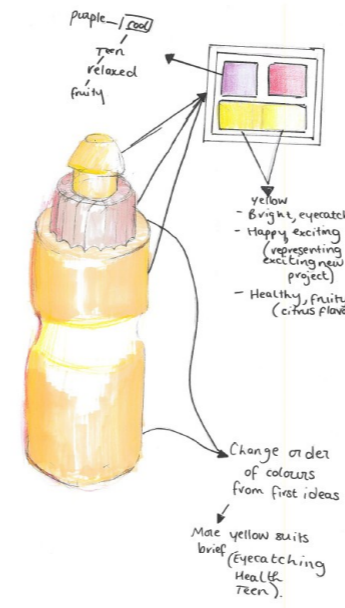 purple - cool
Teen
relaxed
fruity
yellow
- Bright, eyecatch
- Happy exciting
(representing
exciting new
project)
- Healthy, fruity
(citrus flav
Change order
of colours
from first ideas
More yellow suits
brief (Eyecatching
Health
Teen).